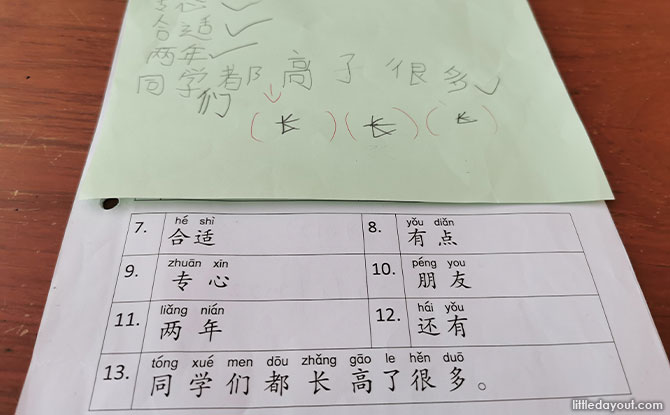 专心 ✓
合适 ✓
两年 ✓
同学都高子很多 ✓
们
(长)(长)(长)
7. hé shì 8. yǒu diǎn
合适 有点
9. zhuān xīn 10. péng you
专心 朋友
11. liǎng nián 12. hái yǒu
两年 还有
13. tóng xué men dōu zhǎng gāo le hěn duō
同学们都长高了很多。
littledayout.com